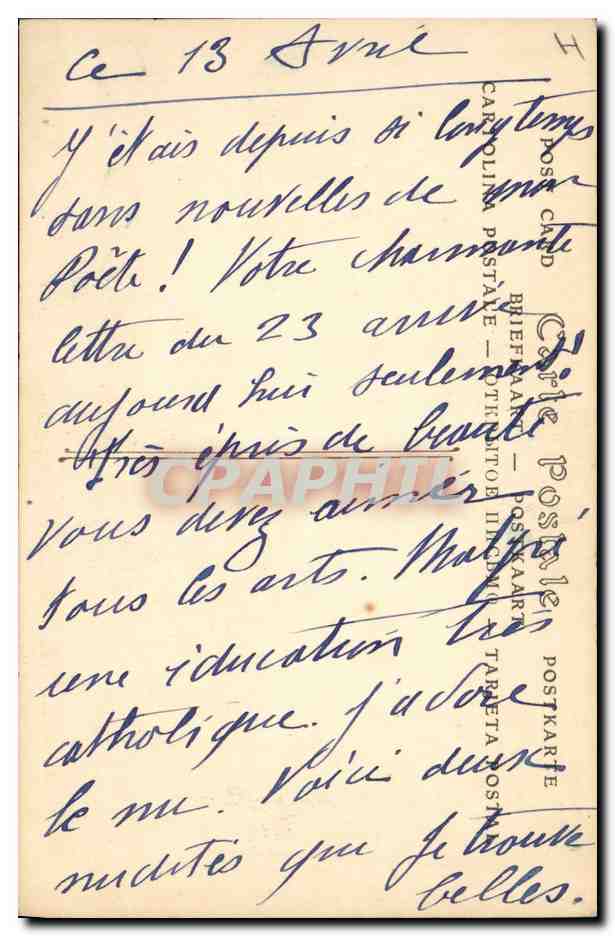 ce 13 Avril
I
J'étais depuis si longtemps
sans nouvelles de mon
Poète! Votre charmante
lettre du 23 arrive
aujourd hui seulement!
Très épris de beauté
vous devez aimer
tous les arts. Malgré
une éducation très
catholique. j'adore
le nu. Voici deux
nudités que je trouve
belles.
CPAPHIL
Carte Postale
POST CARD
POSTKARTE
BRIEFKAART — POSTKAART
CARTOLINA POSTALE — ОТКРЫТОЕ ПИСЬМО — TARJETA POSTAL